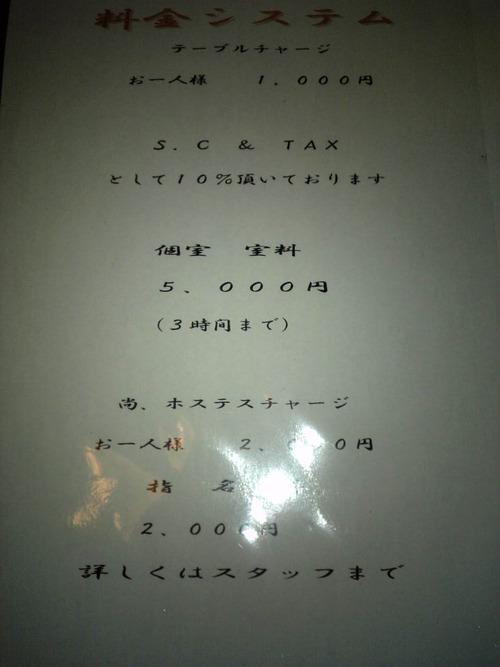 料金システム
テーブルチャージ
お一人様 1.000円
S.C & TAX
として10%頂いております
個室 室料
5、000円
(3時間まで)
尚、ホステスチャージ
お一人様 2、000円
指名
2、000円
詳しくはスタッフまで